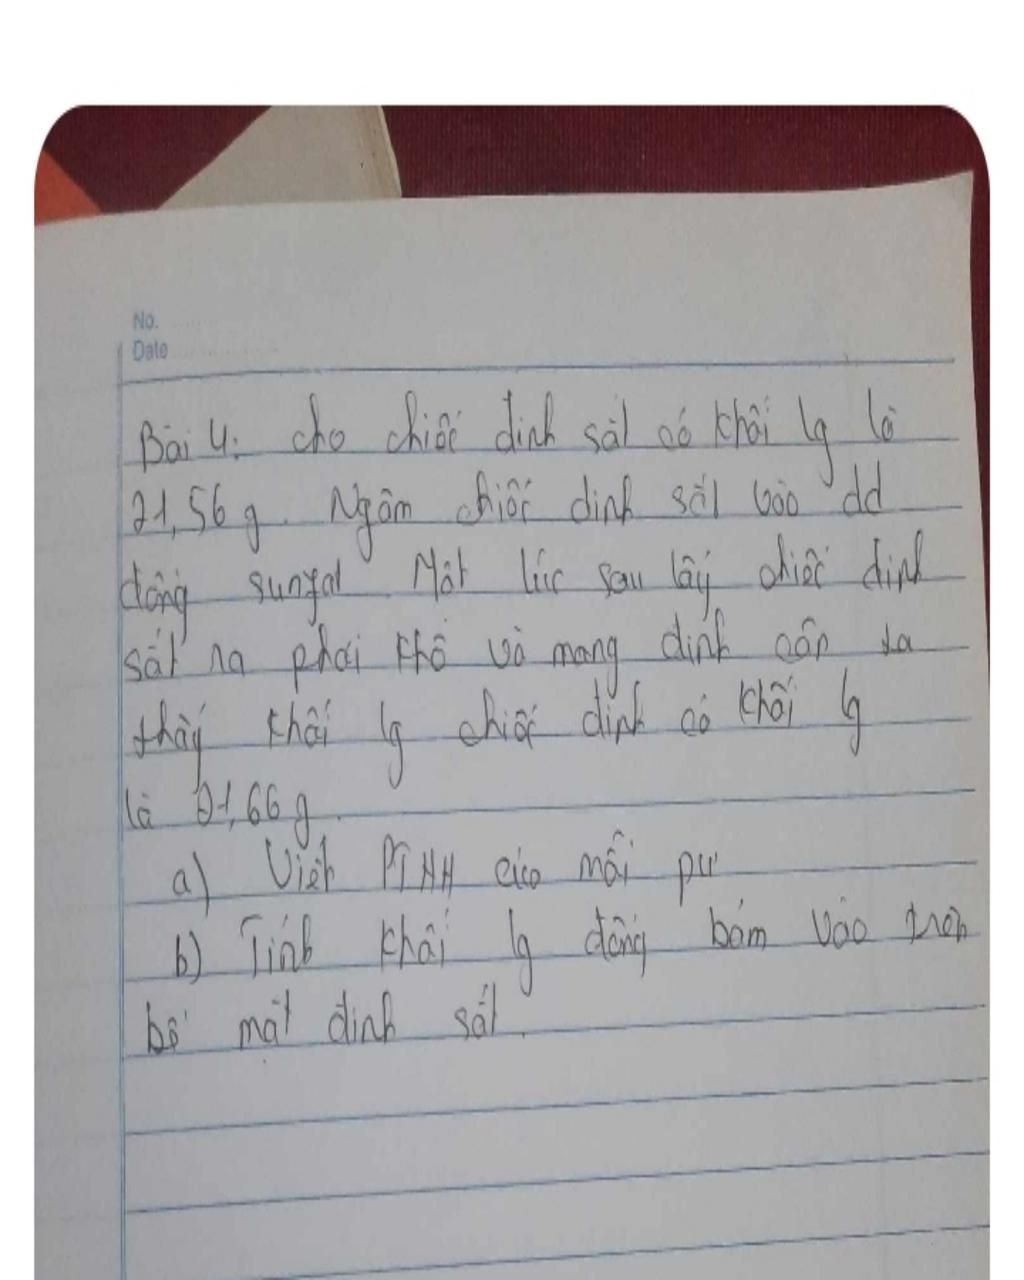 No.
Date
Bài 4: cho chiếc đinh sắt có khối lg là
21,56 g. Ngâm chiếc đinh sắt vào dd
đồng sunfat. Một lúc sau lấy chiếc đinh
sắt ra phơi khô và mang đinh cân ta
thấy khối lg chiếc đinh có khối lg
là 21,66 g.
a) Viết PTHH của mỗi pư
b) Tính khối lg đồng bám vào trên
bề mặt đinh sắt.